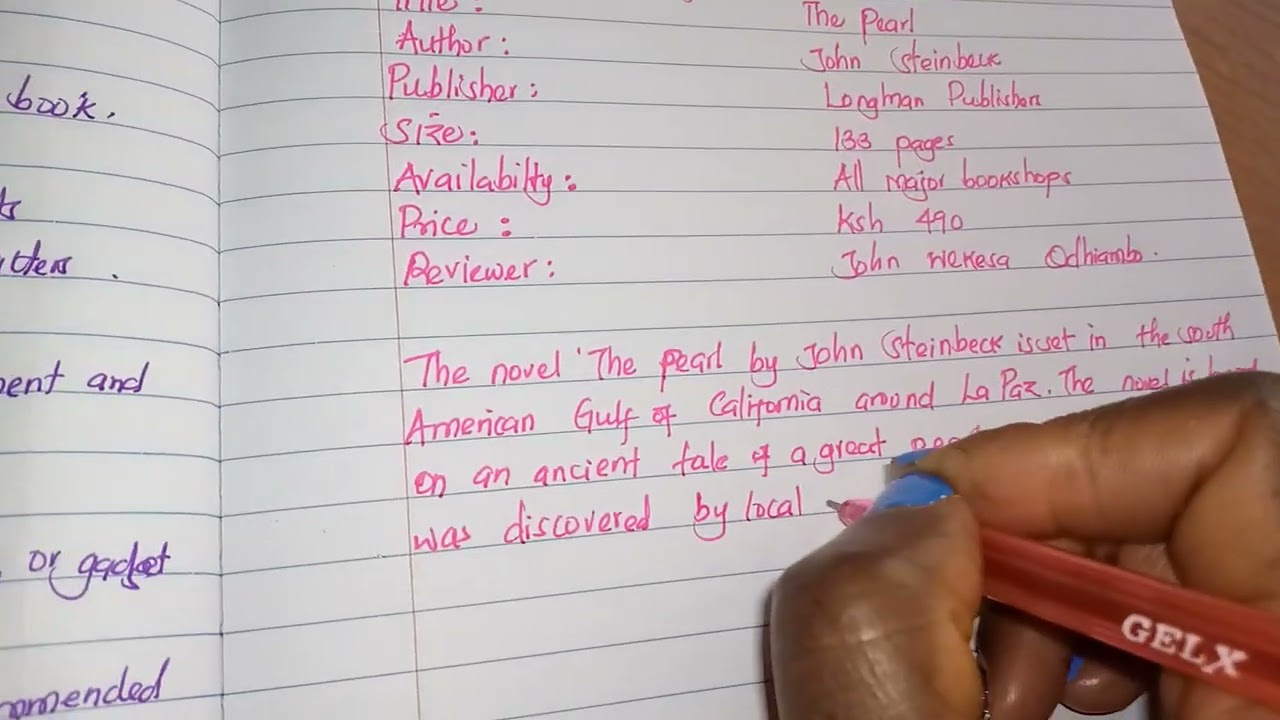 book.
ent and
or gadget
omended
Title: The Pearl
Author: John Steinbeck
Publisher: Longman Publishers
Size: 133 pages
Availabilty: All major bookshops
Price: Ksh 490
Reviewer: John Wekesa Odhiambo.
The novel 'The pearl by John Steinbeck is set in the south
American Gulf of California around La Paz. The novel is
on an ancient tale of a great
was discovered by local
GELX